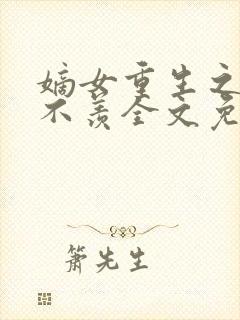 嫡女重生之
不羡全文免
箫先生